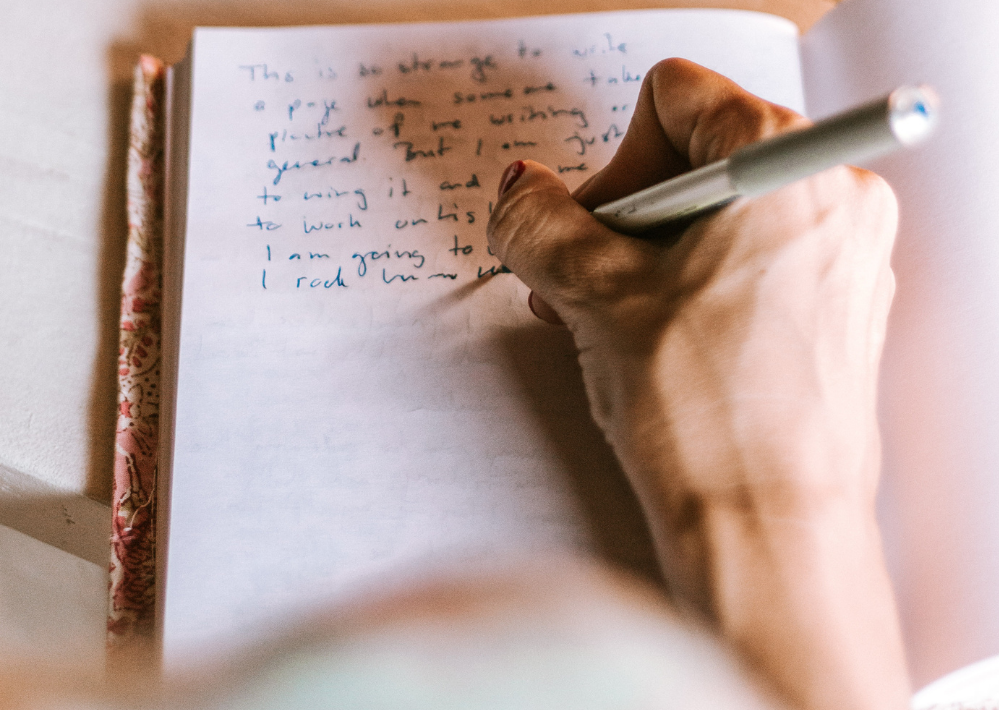 This is so strange to write
a page when someone take
of me writing or
general. But I am just
to wing it and me
to work on this
I am going to
I rock